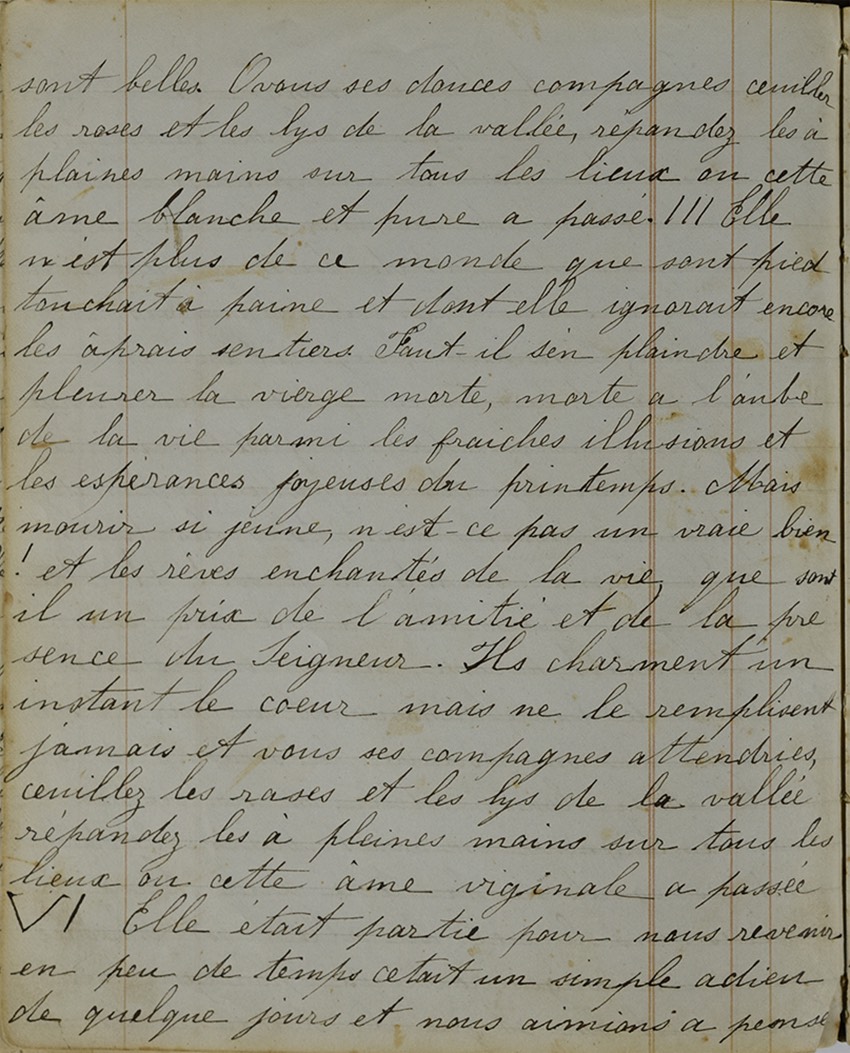 sont belles. O vous ses douces compagnes ceuiller
les roses et les lys de la vallée, répandez les à
plaines mains sur tous les lieux ou cette
âme blanche et pure a passé. III Elle
n'est plus de ce monde que sont pied
touchait à paine et dont elle ignorait encore
les âprais sentiers. Faut-il s'en plaindre et
pleurer la vierge morte, morte a l'aube
de la vie parmi les fraiches illusions et
les espérances joyeuses du printemps. Mais
mourir si jeune, n'est-ce pas un vraie bien
! et les rèves enchantés de la vie, que sont
il un prix de l'amitié et de la pre
sence du Seigneur. Ils charment un
instant le coeur mais ne le remplisent
jamais et vous ses compagnes attendries,
ceuillez les rases et les lys de la vallée
répandez les à pleines mains sur tous les
lieux ou cette âme viginale a passée
VI Elle était partie pour nous revenir
en peu de temps cetait un simple adieu
de quelque jours et nous aimions a pensé